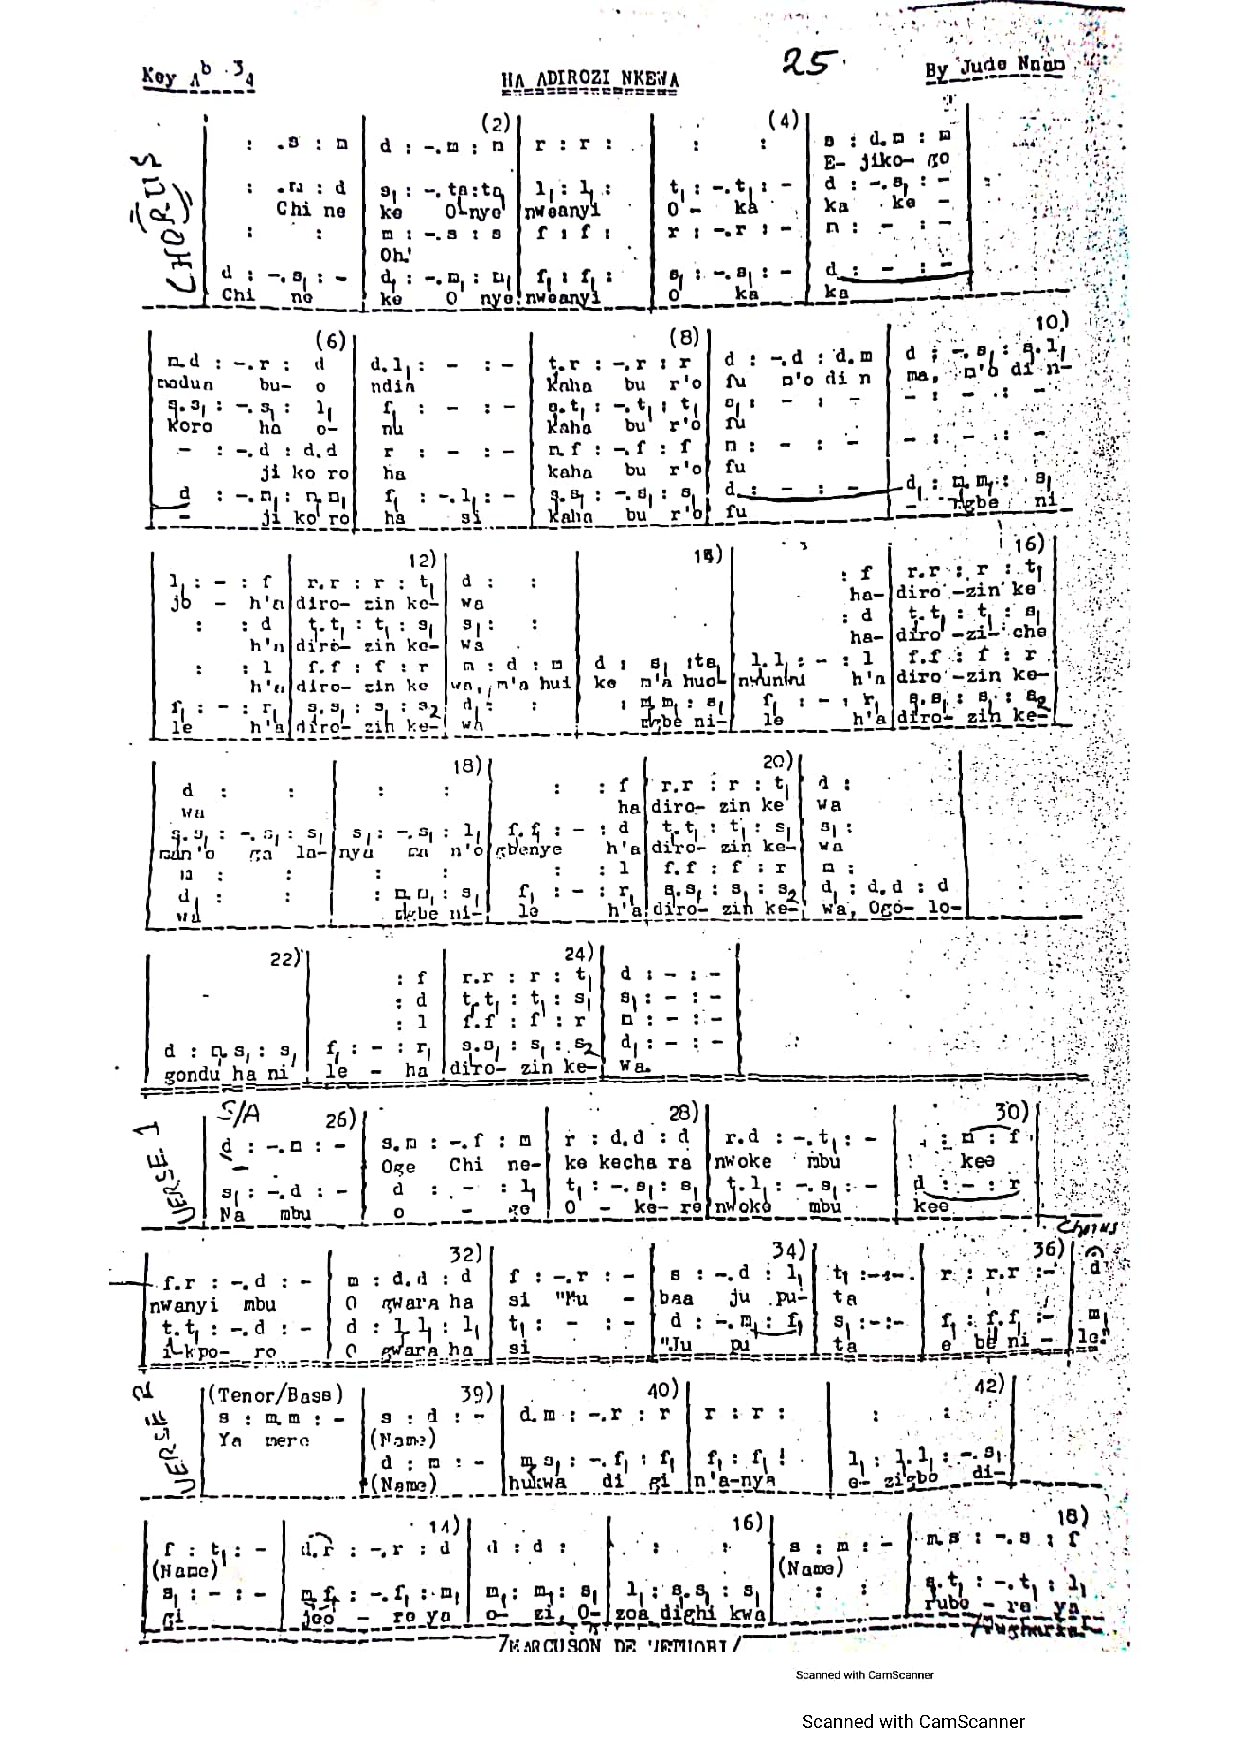 Key Ab 3/4
HA ADIROZI NKEWA
25
By Jude Nnam
CHORUS
(2) (4)
: .s : m | d : -.m : m | r : r : | : : | s : d.m : m
E- jiko- go
: .m : d | s₁ : -.ta : ta | l₁ : l₁ : | t₁ : -.t₁ : - | d : -.s₁ : -
Chi ne | ke O-nye | nweanyi | O - ka | ka ke -
: : | m : -.s : s | f : f : | r : -.r : - | m : - : -
Oh!
d : -.s₁ : - | d₁ : -.m₁ : m₁ | f₁ : f₁ : | s₁ : -.s₁ : - | d : - : -
Chi ne | ke O nye | nweanyi | O ka | ka
(6) (8) 10)
m.d : -.r : d | d.l₁ : - : - | t.r : -.r : r | d : -.d : d.m | d : -.s₁ : s.l₁
madun bu- o | ndin | kaha bu r'o | fu n'o di n | ma, n'o di n-
s.s₁ : -.s₁ : l₁ | f₁ : - : - | s.t₁ : -.t₁ : t₁ | s₁ : - : - | - : - : -
koro ha o- | nu | kaha bu r'o | fu
- : -.d : d.d | r : - : - | m.f : -.f : f | m : - : - | - : - : -
ji ko ro | ha | kaha bu r'o | fu
d : -.m₁ : m₁.m₁ | f₁ : -.l₁ : - | s.s₁ : -.s₁ : s₁ | d : - : - | d₁ : m.m₁ : s₁
- ji ko ro | ha si | kaha bu r'o | fu | - ngbe ni
12) 14) 16)
l₁ : - : f | r.r : r : t₁ | d : : | | : f | r.r : r : t₁
jo - h'a | diro- zin ke- | wa | | ha- | diro -zin ke
: : d | t.t₁ : t₁ : s₁ | s₁ : : | | : d | t.t₁ : t₁ : s₁
h'a | diro- zin ke- | wa | | ha- | diro -zi- che
: : l | f.f : f : r | m : d : m | d : s₁ : ta₁ | l.l₁ : - : l | f.f : f : r
h'a | diro- zin ke | wa, m'a hui | ke m'a huo | nwunwu h'a | diro -zin ke-
f₁ : - : r₁ | s.s₁ : s₁ : s₂ | d₁ : : | : m.m₁ : s₁ | f₁ : - : r₁ | s.s₁ : s₁ : s₂
le h'a | diro- zin ke- | wa | ngbe ni- | le h'a | diro- zin ke-
18) 20)
d : : | : : | : : f | r.r : r : t₁ | d :
wa | | ha | diro- zin ke | wa
s.s₁ : -.s₁ : s₁ | s₁ : -.s₁ : l₁ | f.f : - : d | t.t₁ : t₁ : s₁ | s₁ :
ga la- | nya n'o | gbenye h'a | diro- zin ke- | wa
m : : | : : | : : l | f.f : f : r | m :
d₁ : : | : m.m₁ : s₁ | f₁ : - : r₁ | s.s₁ : s₁ : s₂ | d₁ : d.d : d
wa | ngbe ni- | le h'a | diro- zin ke- | wa, Ogo- lo-
22) 24)
: f | r.r : r : t₁ | d : - : -
: d | t.t₁ : t₁ : s₁ | s₁ : - : -
: l | f.f : f : r | m : - : -
d : m.s₁ : s₁ | f₁ : - : r₁ | s.s₁ : s₁ : s₂ | d₁ : - : -
gondu ha ni | le - ha | diro- zin ke- | wa.
VERSE 1
S/A 26) 28) 30)
d : -.m : - | s.m : -.f : m | r : d.d : d | r.d : -.t₁ : - | : m : f
- | Oge Chi ne- | ke kecha ra | nwoke mbu | kee
s₁ : -.d : - | d : - : l₁ | t₁ : -.s₁ : s₁ | t.l₁ : -.s₁ : - | d : - : r
Na mbu | o - ge | O - ke- re | nwoke mbu | kee
Chorus
32) 34) 36)
f.r : -.d : - | m : d.d : d | f : -.r : - | s : -.d : l₁ | t₁ :-:-. | r : r.r :- | d
nwanyi mbu | O gwara ha | si "Mu - | baa ju pu- | ta
t.t₁ : -.d : - | d : l.l₁ : l₁ | t₁ : - : - | d : -.m₁ : f₁ | s₁ :-:- | f₁ : f.f₁ :- | m₁
i-kpo- ro | O gwara ha | si | "Ju pu | ta | e be ni - | le."
VERSE 2
(Tenor/Bass) 39) 40) 42)
s : m.m : - | s : d : - | d.m : -.r : r | r : r : | : :
Ya mere | (Name)
d : m : - | m.s₁ : -.f₁ : f₁ | f₁ : f₁ : | l₁ : l.l₁ : -.s₁
(Name) | hukwa di gi | n'a-nya | e- zigbo di-
14) 16) 18)
f : t₁ : - | d.r : -.r : d | d : d : | : : | s : m : - | m.s : -.s : f
(Name) | (Name)
s₁ : - : - | m.f₁ : -.f₁ : m₁ | m₁ : m₁ : s₁ | l₁ : s.s₁ : s₁ | : : | s.t₁ : -.t₁ : l₁
gi | jee - re ya | o- zi, O- | zoa dighi kwa | | rube - re ya
Scanned with CamScanner
Scanned with CamScanner